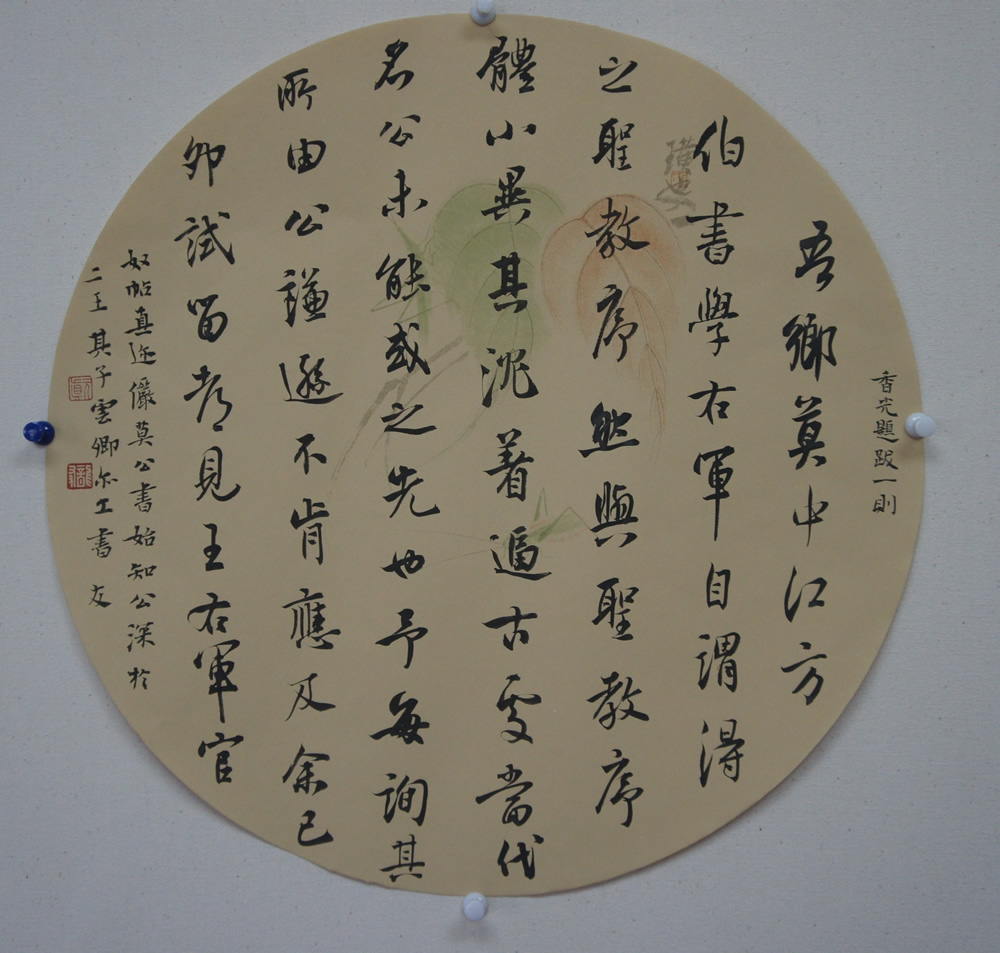 香光題跋一則
吾鄉莫中江方
伯書學右軍自謂得
之聖教序然與聖教序
體小異其沉着遒古處當代
名公未能或之先也予每詢其
所由公謙遜不肯應及余己
卯試留都見王右軍官
奴帖真迹儼莫公書始知公深於
二王其子雲卿亦工書